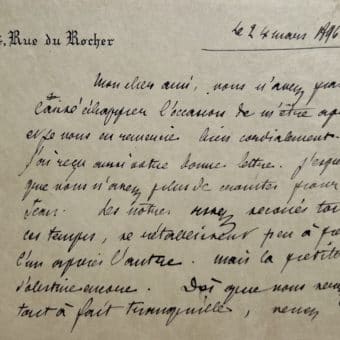 , Rue du Rocher
le 24 mars 1896
Mon cher ami, vous n'avez pas
laissé échapper l'occasion de m'être
et je vous en remercie bien cordialement.
J'ai reçu aussi votre bonne lettre. J'esp
que vous n'avez plus de craintes pour
Jean. Les nôtres assez secoués
ces temps, se rétablissent peu à pe
l'un après l'autre. mais la petite
s'alerte encore. Dès que nous
tout à fait tranquille, venez